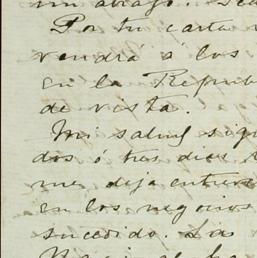 un abrazo.
Por tu carta
vendrá á los
en la Repub
de vista.
Mi salud sigue
dos ó tres dias
me deja
en los negocios
sucedido. Las